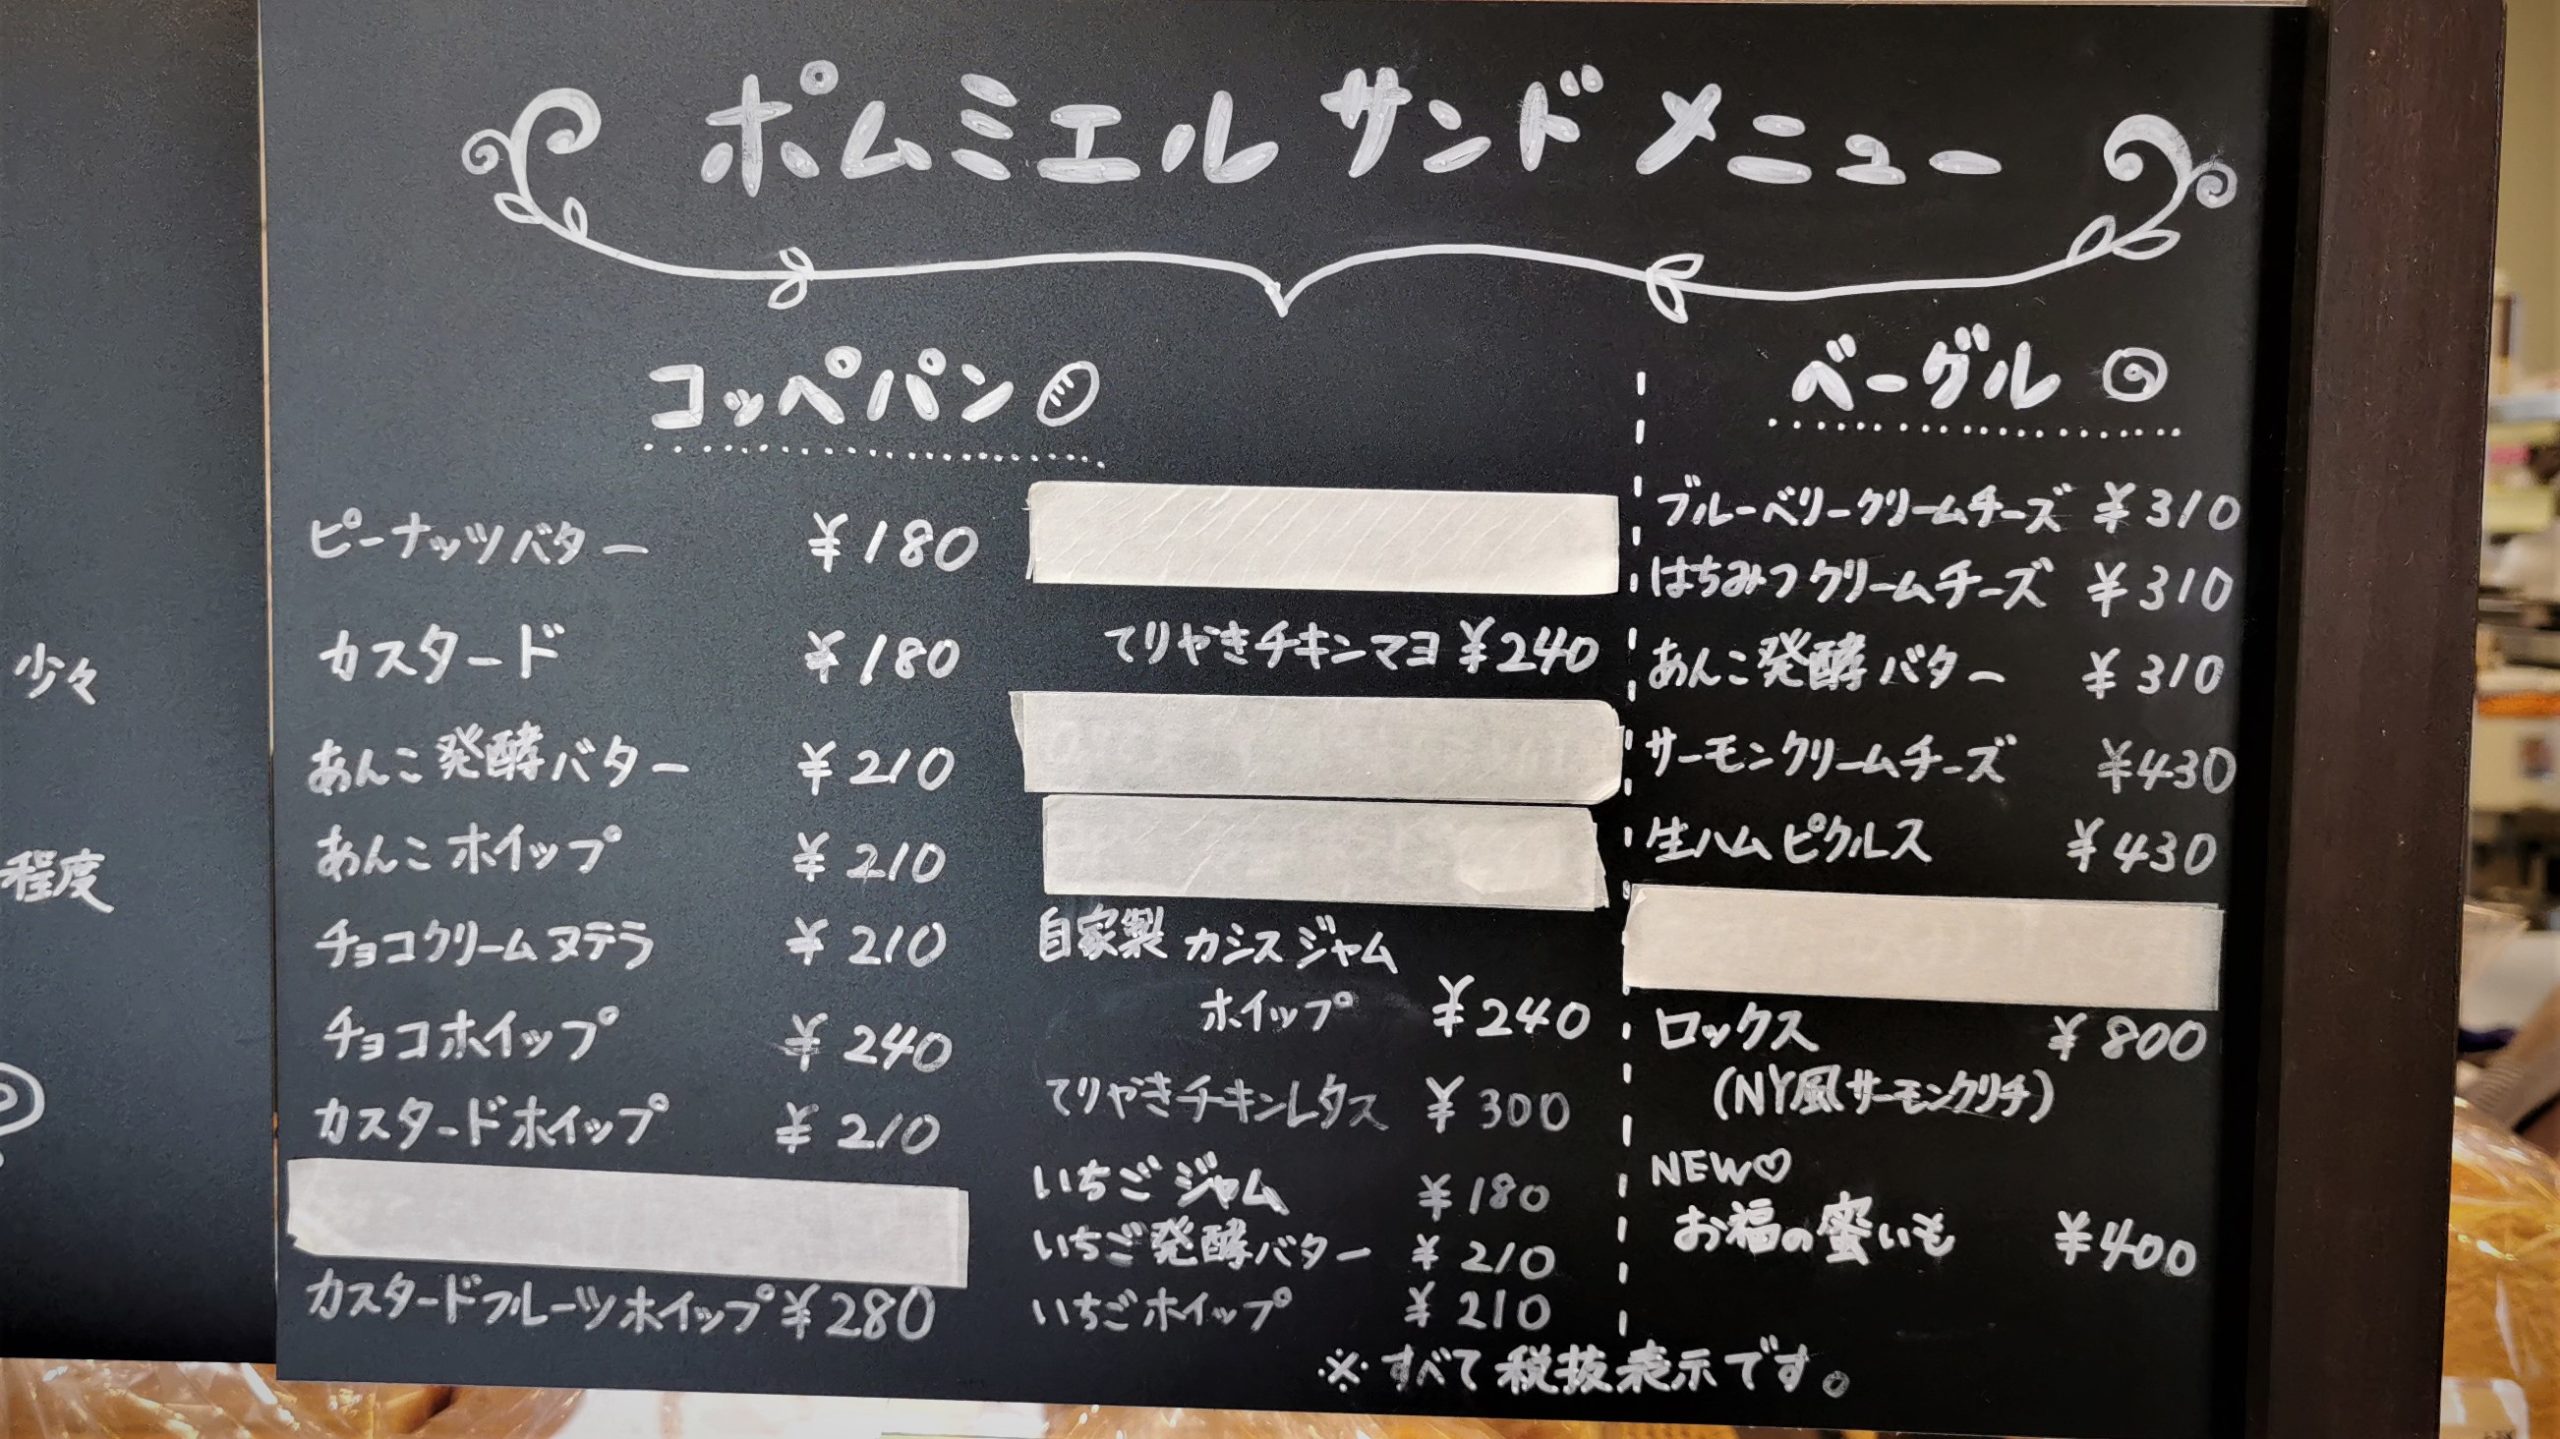 少々
程度
ポムミエル サンド メニュー
コッペパン
ピーナッツバター ¥180
カスタード ¥180
あんこ発酵バター ¥210
あんこホイップ ¥210
チョコクリームヌテラ ¥210
チョコホイップ ¥240
カスタードホイップ ¥210
カスタードフルーツホイップ ¥280
てりやきチキンマヨ ¥240
自家製 カシスジャム
ホイップ ¥240
てりやきチキンレタス ¥300
いちごジャム ¥180
いちご発酵バター ¥210
いちごホイップ ¥210
ベーグル
ブルーベリークリームチーズ ¥310
はちみつクリームチーズ ¥310
あんこ発酵バター ¥310
サーモンクリームチーズ ¥430
生ハムピクルス ¥430
ロックス ¥800
(NY風サーモンクリチ)
NEW♡
お福の蜜いも ¥400
※すべて税抜表示です。